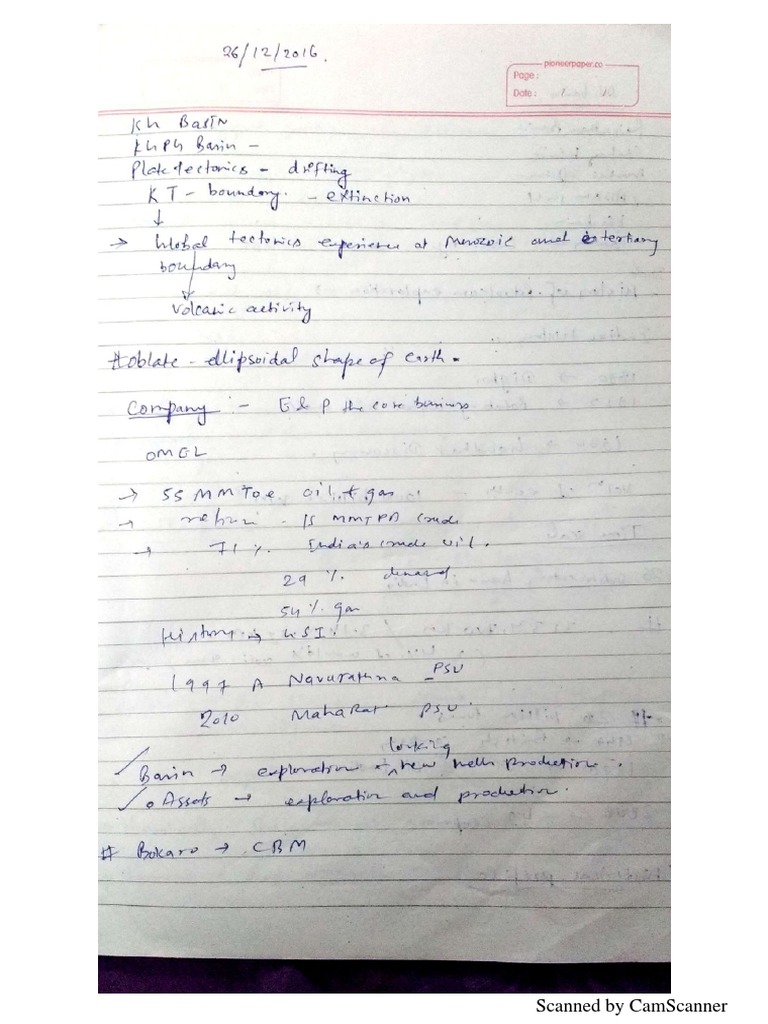 26/12/2016.
pioneerpaper.co
Page :
Date :
Kh Basin
KhPh Basin -
Plate tectonics - drifting
KT - boundary. - extinction
↓
→ Global tectonics experience at Mesozoic and tertiary
boundary
Volcanic activity
# oblate - ellipsoidal shape of Earth.
Company :- E & P the core business
OMEL
→ 55 MMToe oil + gas
→ - 15 MMTPA crude
→ 71% India's crude oil.
29 % demand
54% gas
History → GSI.
1997 A Navurathna PSU
2010 MahaRat PSU
Basin → exploration looking new wells production.
Assets → exploration and production.
# Bokaro → CBM
Scanned by CamScanner